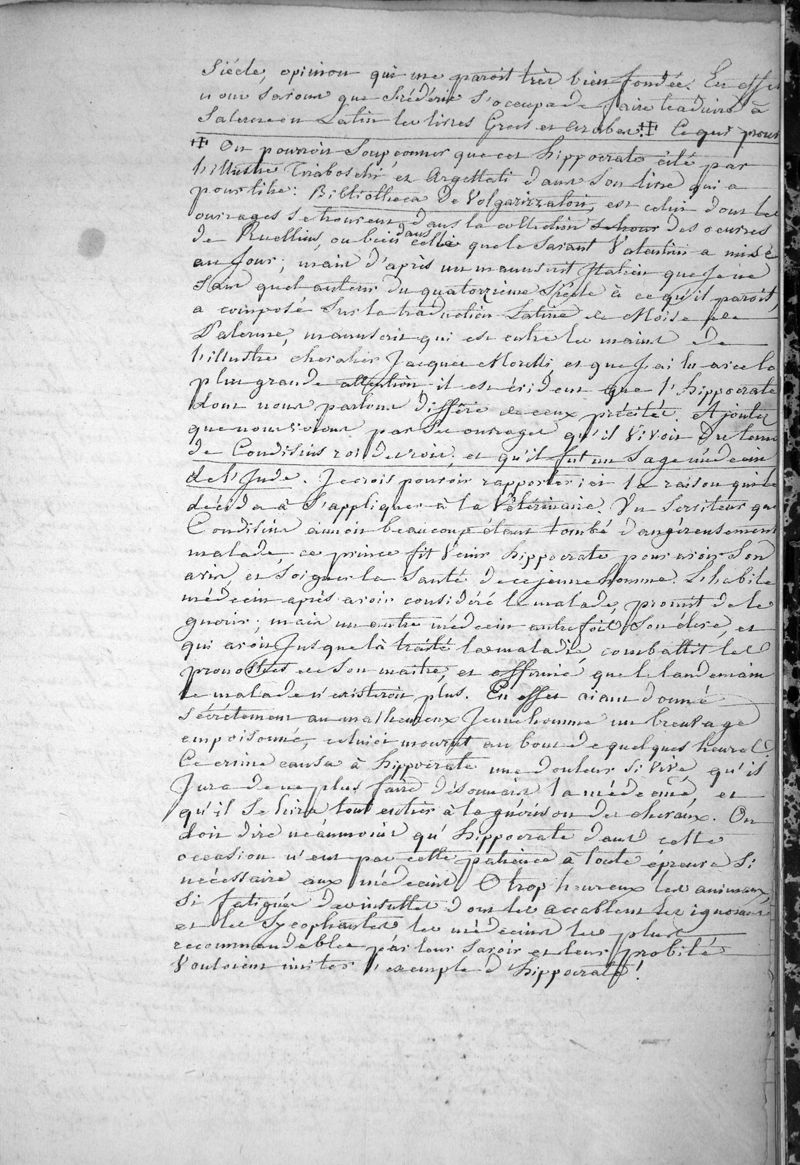 Siécle, opinion qui me paroit très bien fondée. En effet
nous savons que Fréderic s'occupa de faire traduire à
Salerne en Latin les livres Grecs et arabes ‡ Ce qui prouv
‡ On pourroit soupçonner que cet hippocrate cité par
l'illustre Tiraboschi et Argettati dans son livre qui a
pour titre: Bibliotheca de Volgarizzatori, est celui dont les
ouvrages se trouvent dans la collection des oeuvres
de Ruellius, ou bien dans celle que le savant Valentin a mise
au jour; mais d'après un manuscrit Italien que je ne
sais quel auteur du quatorzième Siècle à ce qu'il paroit,
a composé sur la traduction Latine de Moïse de
Palerme, manuscrit qui est entre les mains de
l'illustre chevalier Jacques Morelli, et que j'ai lu avec la
plus grande attention il est évident que l'hippocrate
dont nous parlons diffère de ceux précités. Ajoutez
que nous voions par ses ouvrages qu'il vivoit du tems
de Condisius roi des rois et qu'il fut un sage médecin
de l'Inde. Je crois pouvoir rapporter ici la raison qui le
décida à s'appliquer à la Vétérinaire. Un serviteur que
Condisius aimoit beaucoup étant tombé dangéreusement
malade, ce prince fit venir hippocrate pour avoir son
avis, et soigner la santé de ce jeune homme. L'habile
médecin après avoir considéré le malade, promit de le
guérir; mais un autre médecin autrefois son éléve, et
qui avoit jusque là traité la maladie combattit les
pronostics de son maitre, et affirmé que le landemain
le malade n'existeroit plus. En effet aiant donné
sécrètement au malheureux jeune homme un breuvage
empoisonné, celui ci mourut au bout de quelques heures
Ce crime causa à hippocrate une douleur si vive qu'il
jura de ne plus faire désormais la médecine, et
qu'il se livra tout entier à la guérison des chevaux. On
doit dire néanmoins qu'hippocrate dans cette
occasion n'eut pas cette patience à toute épreuve si
nécessaire aux médecins. O trop heureux les animaux,
si fatigués des insultes dont les accablent les ignorans
et les Sycophantes les médecins les plus
recommandables par leur savoir et leur probité
Vouloient imiter l'exemple d'hippocrate!